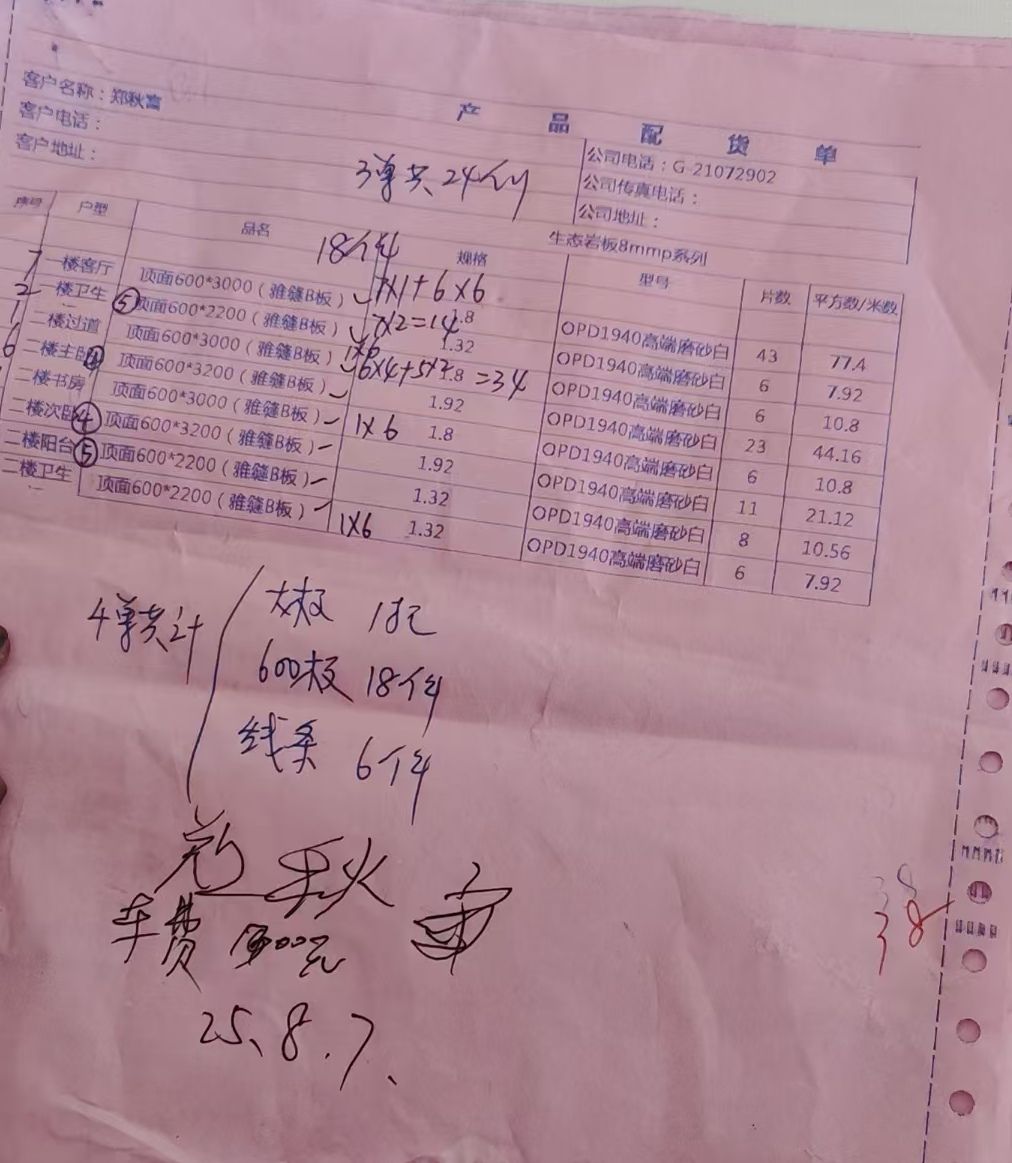 产品配货单
客户名称：郑秋富
客户电话：
客户地址：
公司电话：G-21072902
公司传真电话：
公司地址：
3单共24件
18个件
生态岩板8mmp系列
序号 户型 品名 规格 型号 片数 平方数/米数
7 一楼客厅 顶面600*3000（雅缝B板） 7X1+6X6 1.8 OPD1940高端磨砂白 43 77.4
2 一楼卫生 ⑤ 顶面600*2200（雅缝B板） 7X2=14 1.32 OPD1940高端磨砂白 6 7.92
1 二楼过道 顶面600*3000（雅缝B板） 1X6 1.8 OPD1940高端磨砂白 6 10.8
6 二楼主卧 ④ 顶面600*3200（雅缝B板） 6X4+5X2=34 1.92 OPD1940高端磨砂白 23 44.16
二楼书房 顶面600*3000（雅缝B板） 1X6 1.8 OPD1940高端磨砂白 6 10.8
二楼次卧 ④ 顶面600*3200（雅缝B板） 1.92 OPD1940高端磨砂白 11 21.12
二楼阳台 ⑤ 顶面600*2200（雅缝B板） 1.32 OPD1940高端磨砂白 8 10.56
二楼卫生 顶面600*2200（雅缝B板） 1X6 1.32 OPD1940高端磨砂白 6 7.92
4单共计
大板 1托
600板 18件
线条 6件
郑秋富
车费 00元
25.8.7、
38
38